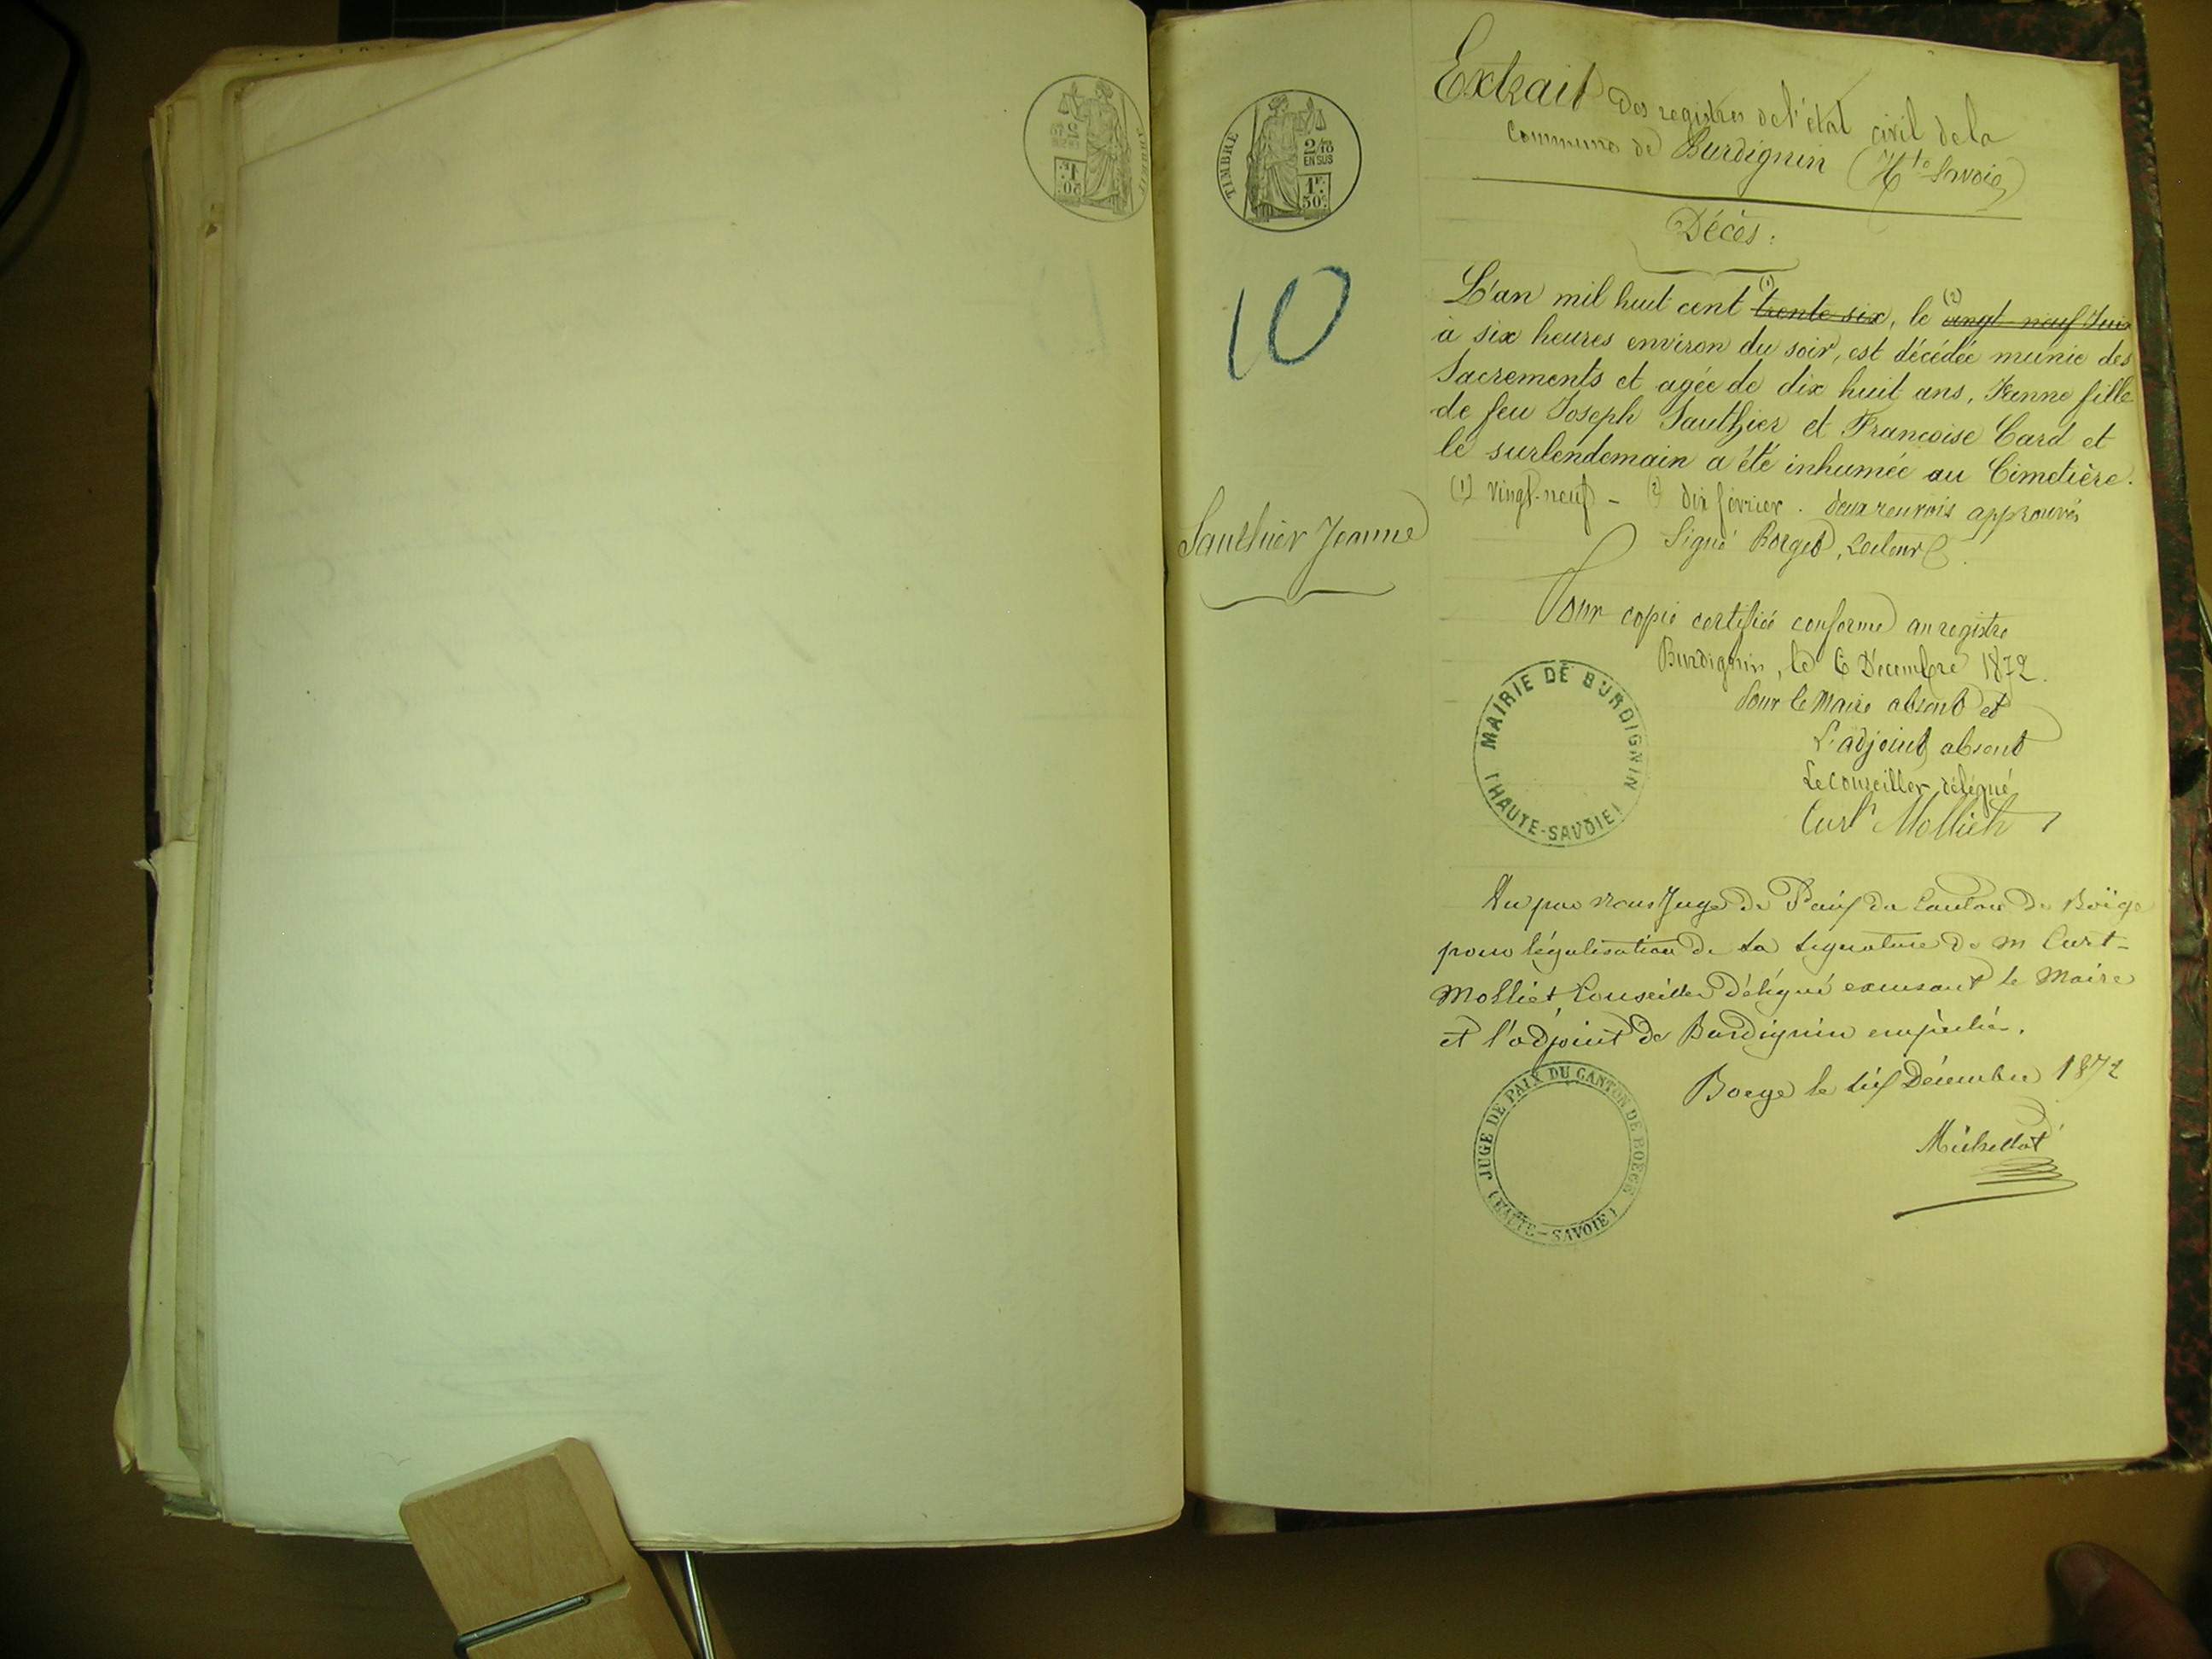 TIMBRE
2/10
EN SUS
1F.
50c.
10
Extrait des registres de l'état civil de la
Commune de Burdignin (Hte Savoie)
Décès :
L'an mil huit cent (1) trente six, le (2) vingt neuf Juin
à six heures environ du soir, est décédée munie des
Sacrements et agée de dix huit ans, Jeanne fille
de feu Joseph Sauthier et Françoise Card et
le surlendemain a été inhumée au Cimetière.
(1) vingt-neuf - (2) dix février. deux renvois approuvés
Signé Borget, Recteur
Sauthier Jeanne
Pour copie certifiée conforme au registre
Burdignin, le 6 Décembre 1872.
Pour le Maire absent et
L'adjoint absent
Le Conseiller délégué
Curt Molliet
MAIRIE DE BURDIGNIN
(HAUTE-SAVOIE)
Vu par nous Juge de Paix du Canton de Boëge
pour légalisation de la signature de m Curt-
Molliet, Conseiller Délégué le Maire
et l'adjoint de Burdignin empêchés.
Boege le six Décembre 1872
JUGE DE PAIX DU CANTON DE BOEGE
(HAUTE-SAVOIE)